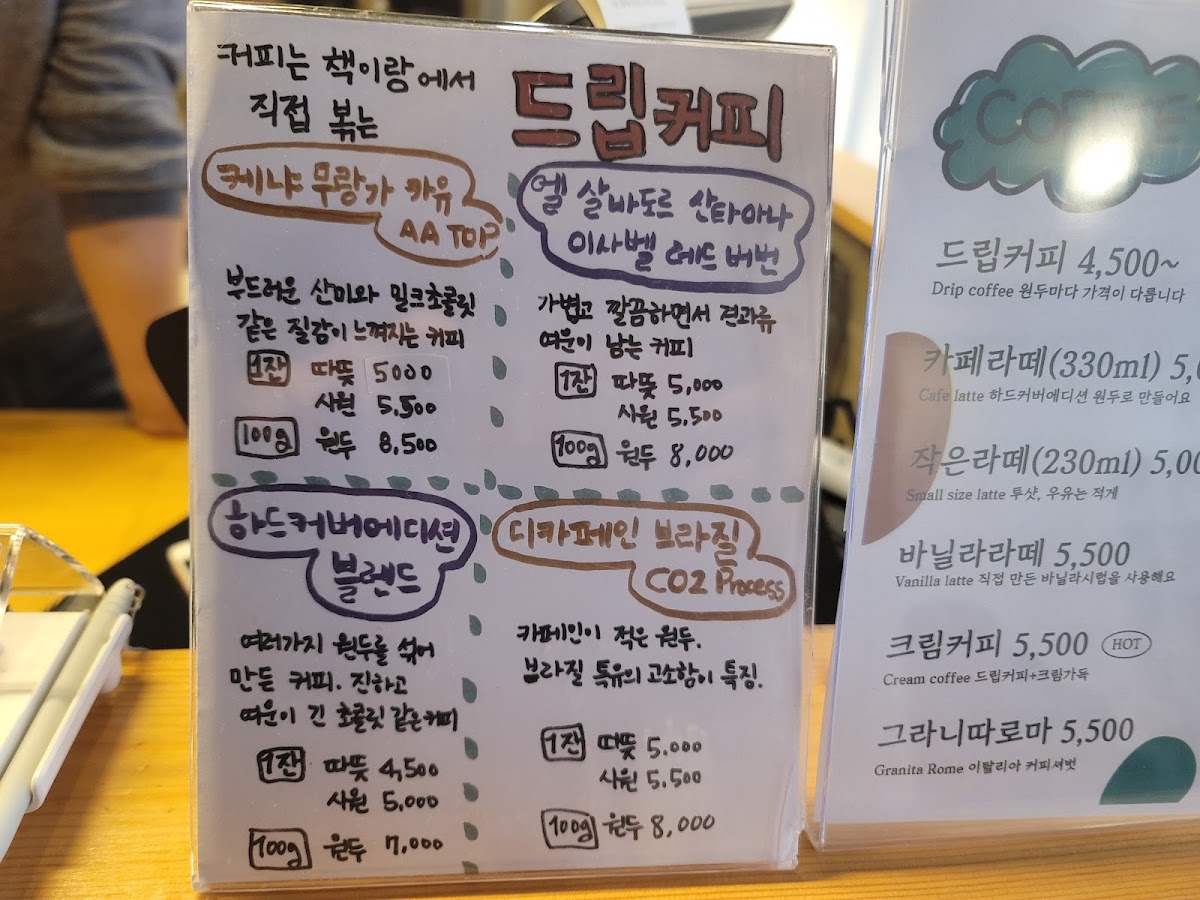 커피는 책이랑에서
직접 볶는
드립커피
케냐 무랑가 카유
AA TOP
부드러운 산미와 밀크초콜릿
같은 질감이 느껴지는 커피
1잔 따뜻 5000
시원 5,500
100g 원두 8,500
엘 살바도르 산타아나
이사벨 레드 버번
가볍고 깔끔하면서 견과류
여운이 남는 커피
1잔 따뜻 5,000
시원 5,500
100g 원두 8,000
하드커버에디션
블렌드
여러가지 원두를 섞어
만든 커피. 진하고
여운이 긴 초콜릿 같은 커피
1잔 따뜻 4,500
시원 5,000
100g 원두 7,000
디카페인 브라질
CO2 Process
카페인이 적은 원두.
브라질 특유의 고소함이 특징.
1잔 따뜻 5.000
시원 5.500
100g 원두 8,000
COFFEE
드립커피 4,500~
Drip coffee 원두마다 가격이 다릅니다
카페라떼(330ml) 5,0
Cafe latte 하드커버에디션 원두로 만들어요
작은라떼(230ml) 5,00
Small size latte 투샷, 우유는 적게
바닐라라떼 5,500
Vanilla latte 직접 만든 바닐라시럽을 사용해요
크림커피 5,500 HOT
Cream coffee 드립커피+크림가득
그라니따로마 5,500
Granita Rome 이탈리아 커피셔벗